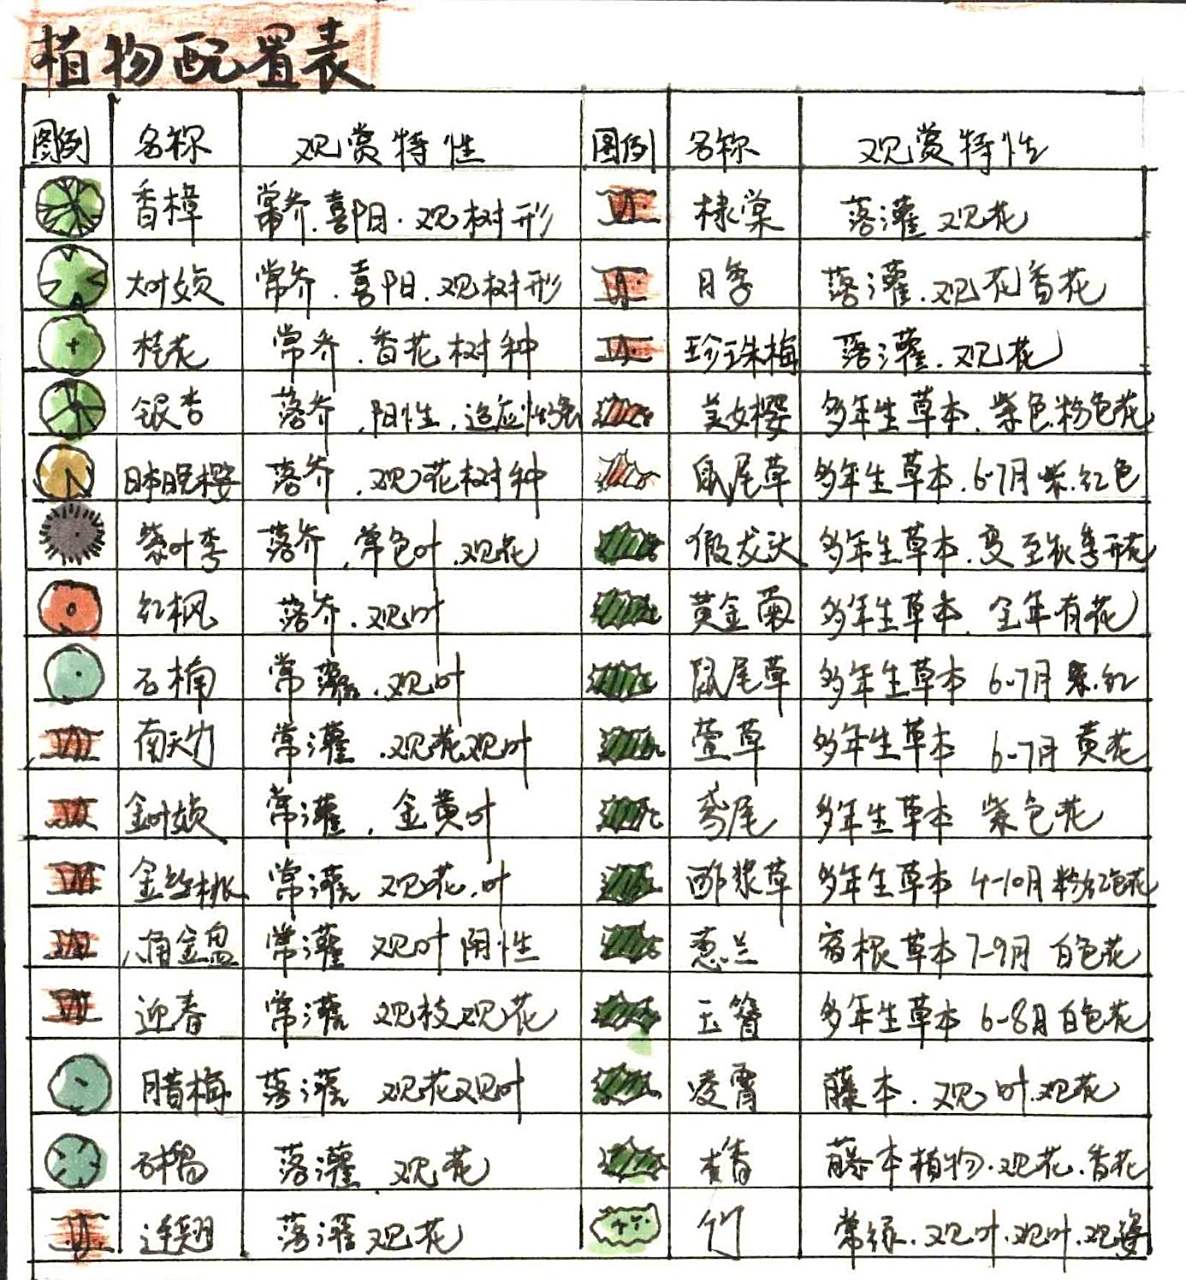 植物配置表
图例 名称 观赏特性 图例 名称 观赏特性
香樟 常乔.喜阳.观树形 棣棠 落灌 观花
大叶女贞 常乔.喜阳.观树形 月季 落灌.观花香花
桂花 常乔.香花树种 珍珠梅 落灌.观花
银杏 落乔,阳性,适应性强 美女樱 多年生草本.紫色.粉色花
日本晚樱 落乔.观花树种 鼠尾草 多年生草本.6-7月 紫.红色
紫叶李 落乔,常色叶.观花 假龙头 多年生草本.夏至秋季开花
红枫 落乔.观叶 黄金菊 多年生草本.全年有花
石楠 常灌.观叶 鼠尾草 多年生草本 6-7月 紫.红
南天竹 常灌.观花观叶 萱草 多年生草本 6-7月 黄花
金叶女贞 常灌,金黄叶 鸢尾 多年生草本 紫色花
金丝桃 常灌 观花.叶 酢浆草 多年生草本 4-10月 粉红色花
八角金盘 常灌 观叶 阴性 葱兰 宿根草本 7-9月 白色花
迎春 常灌 观枝观花 玉簪 多年生草本 6-8月 白色花
腊梅 落灌 观花观叶 凌霄 藤本.观叶.观花
石榴 落灌 观花 藤本植物.观花.香花
连翘 落灌 观花 竹 常绿.观叶.观叶.观姿